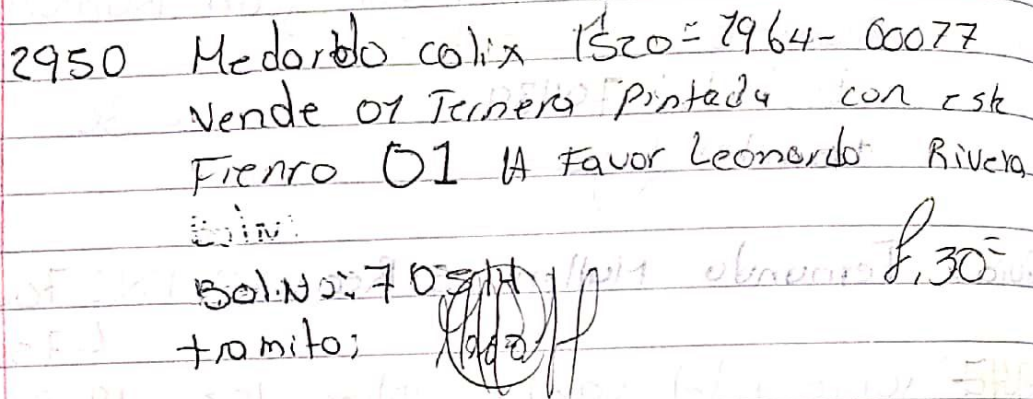 2950 Medardo colix 1520=1964-00077
Vende 01 Ternera Pintada con este
Fierro 01 A Favor Leonardo Rivera
Bol.No:
tramito;
L.30=